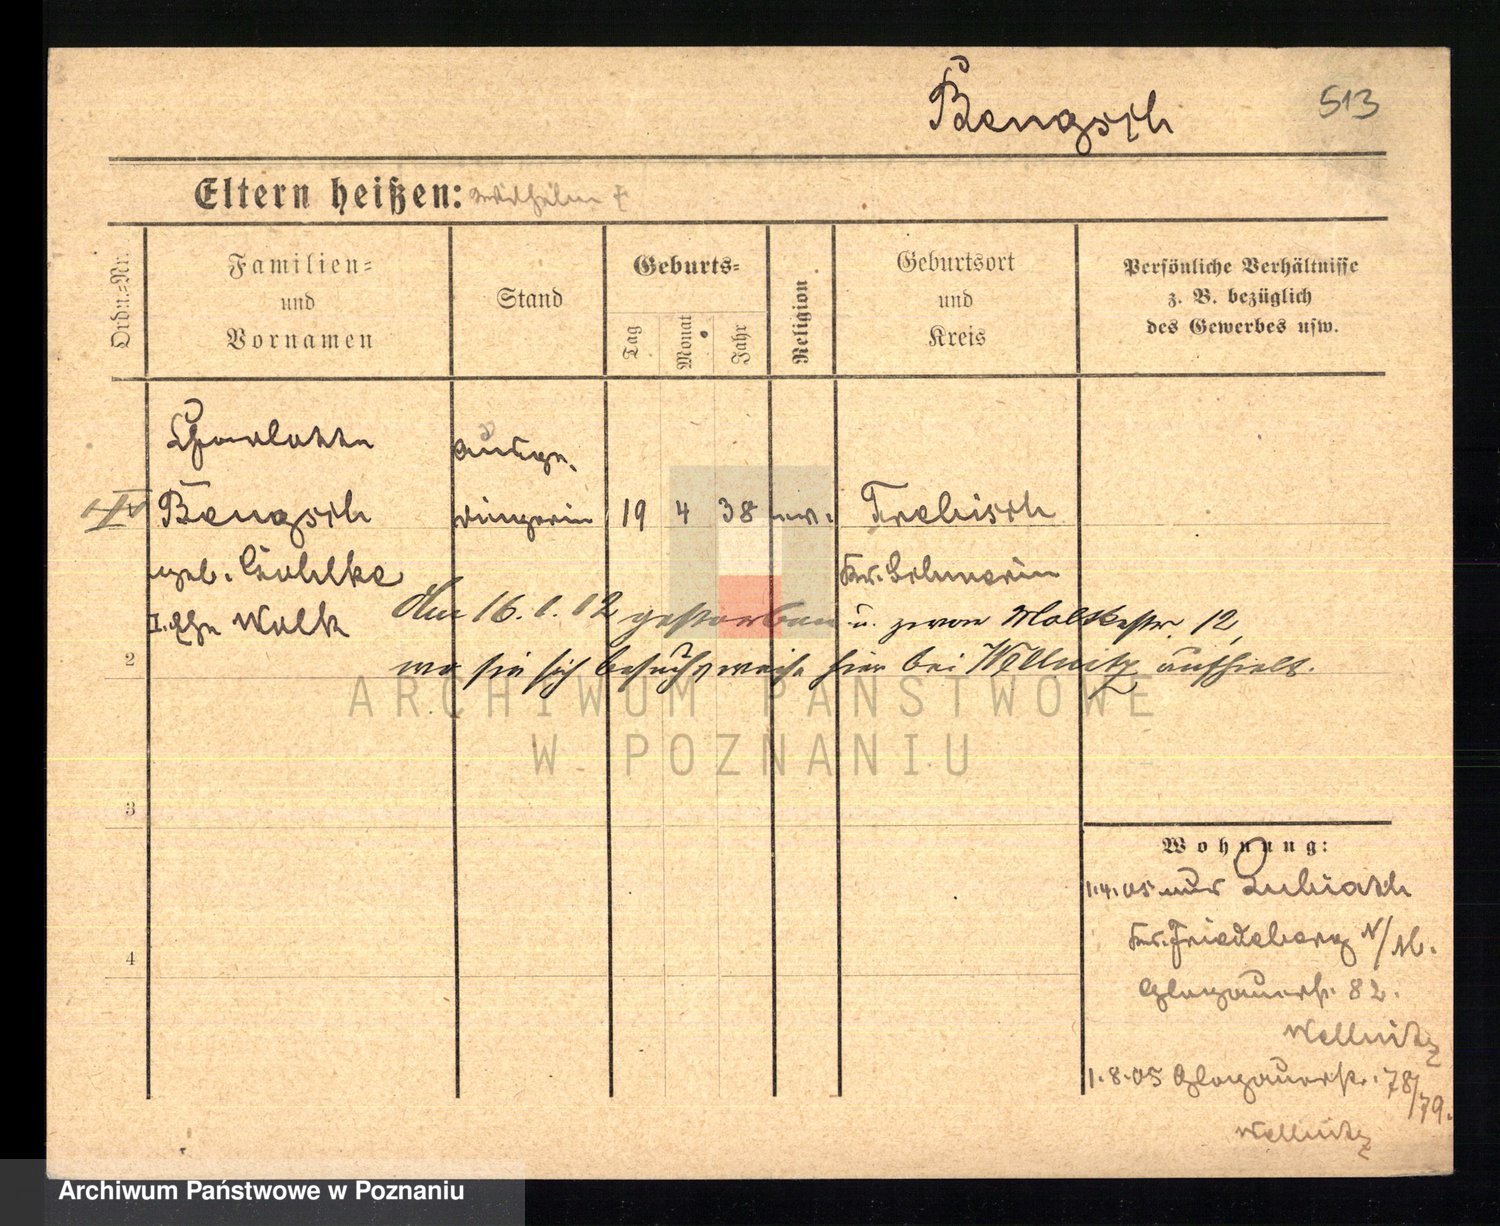 Bengsch
513
Eltern heißen: Wilhelm †
Ordn.-Nr.
Familien-
und
Vornamen
Stand
Geburts-
Tag
Monat
Jahr
Religion
Geburtsort
und
Kreis
Persönliche Verhältnisse
z. B. bezüglich
des Gewerbes usw.
Charlotte
Ausge-
Bengsch
dingerin
19
4
38
ev.
Trebisch
geb. Gohlke
Kr. Schwerin
II. Ehe Wolk
Am 16.1.12 gestorben u. zwar Moltkestr. 12,
2
wo sie sich besuchsweise hier bei Wellnitz aufhielt.
ARCHIWUM PAŃSTWOWE
W POZNANIU
3
4
Wohnung:
1.4.05 aus Lubiath
Kr. Friedeberg N/M.
Glogauerstr. 82.
Wellnitz
1.8.05 Glogauerstr. 78/79.
Wellnitz
Archiwum Państwowe w Poznaniu